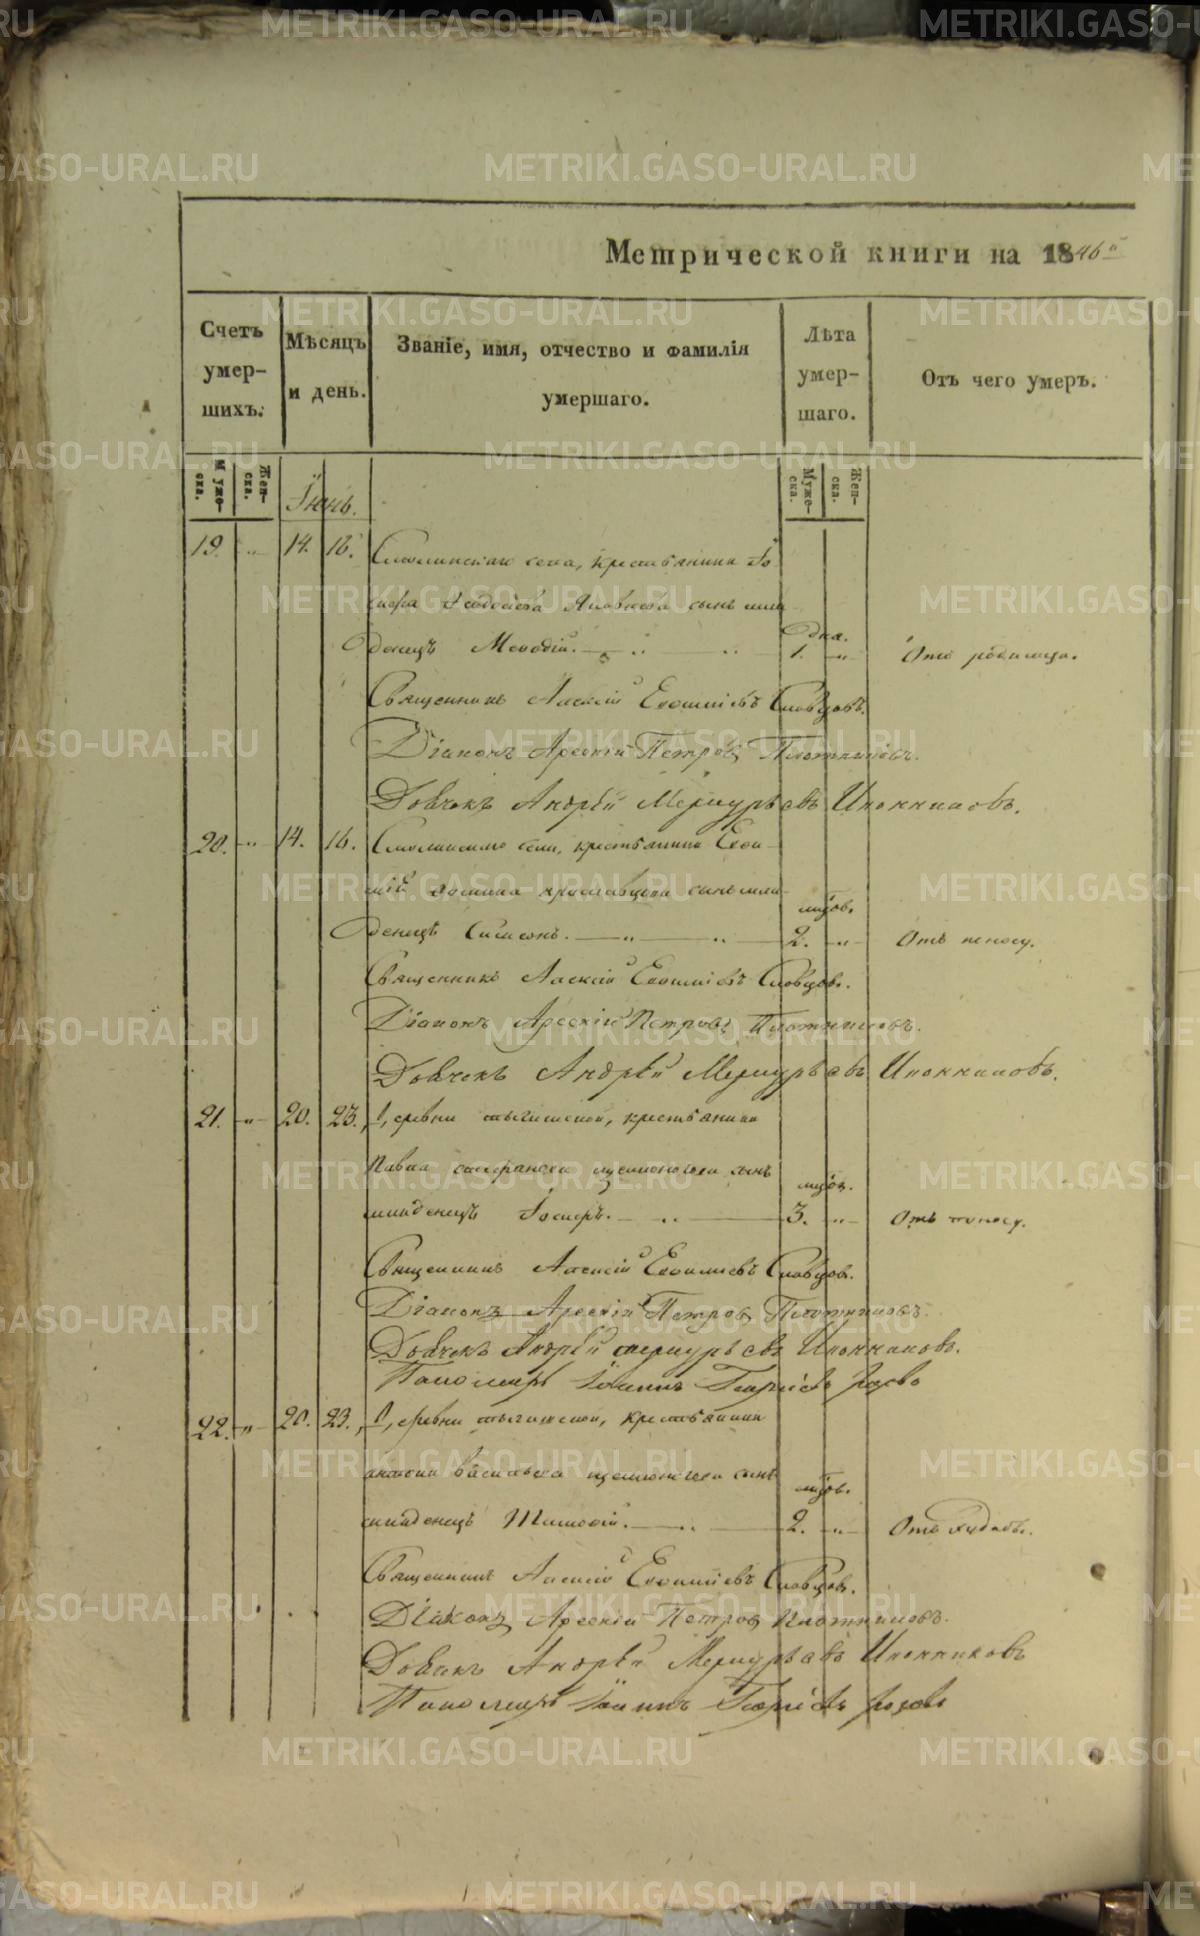 Метрической книги на 1846й
Счетъ умер-шихъ.
Мѣсяцъ и день.
Званіе, имя, отчество и фамилія умершаго.
Лѣта умер-шаго.
Отъ чего умеръ.
Муже-ска.
Жен-ска.
Муже-ска.
Жен-ска.
Іюнь.
19. „ 14. 16. Смолинскаго села, крестьянина
сынъ мла-
денецъ Меѳодій. дня. 1. „ Отъ родимца.
Священникъ Алексій Евѳиміевъ Словцовъ.
Діаконъ Арсеній Петровъ Плотниковъ.
Дьячекъ Андрей Меркурьевъ Иконниковъ.
20. „ 14. 16. Смолинскаго села, крестьянина
сынъ мла-
денецъ Симеонъ. мцов. 2. „ Отъ поносу.
Священникъ Алексій Евѳиміевъ Словцовъ.
Діаконъ Арсеній Петровъ Плотниковъ.
Дьячекъ Андрей Меркурьевъ Иконниковъ.
21. „ 20. 23. Деревни крестьянина
Павла сынъ мцов.
младенецъ 3. „ Отъ поносу.
Священникъ Алексій Евѳиміевъ Словцовъ.
Діаконъ Арсеній Петровъ Плотниковъ.
Дьячекъ Андрей Меркурьевъ Иконниковъ.
Пономарь Іоаннъ Георгіевъ
22. „ 20. 23. Деревни крестьянина
Васильева сынъ мцов.
младенецъ Тимоѳій. 2. „
Священникъ Алексій Евѳиміевъ Словцовъ.
Діаконъ Арсеній Петровъ Плотниковъ.
Дьячекъ Андрей Меркурьевъ Иконниковъ
Пономарь Іоаннъ Георгіевъ
METRIKI.GASO-URAL.RU